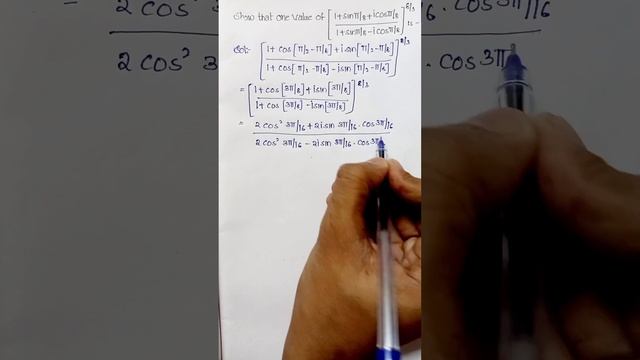 Show that one value of [1+sinπ/8+icosπ/8 / 1+sinπ/8-icosπ/8]^8/3 is -
Sol:- [1+cos[π/2-π/8]+isin[π/2-π/8] / 1+cos[π/2-π/8]-isin[π/2-π/8]]^8/3
= [1+cos[3π/8]+isin[3π/8] / 1+cos[3π/8]-isin[3π/8]]^8/3
= 2cos² 3π/16+2isin 3π/16·cos3π/16 / 2cos² 3π/16-2isin 3π/16·cos3π